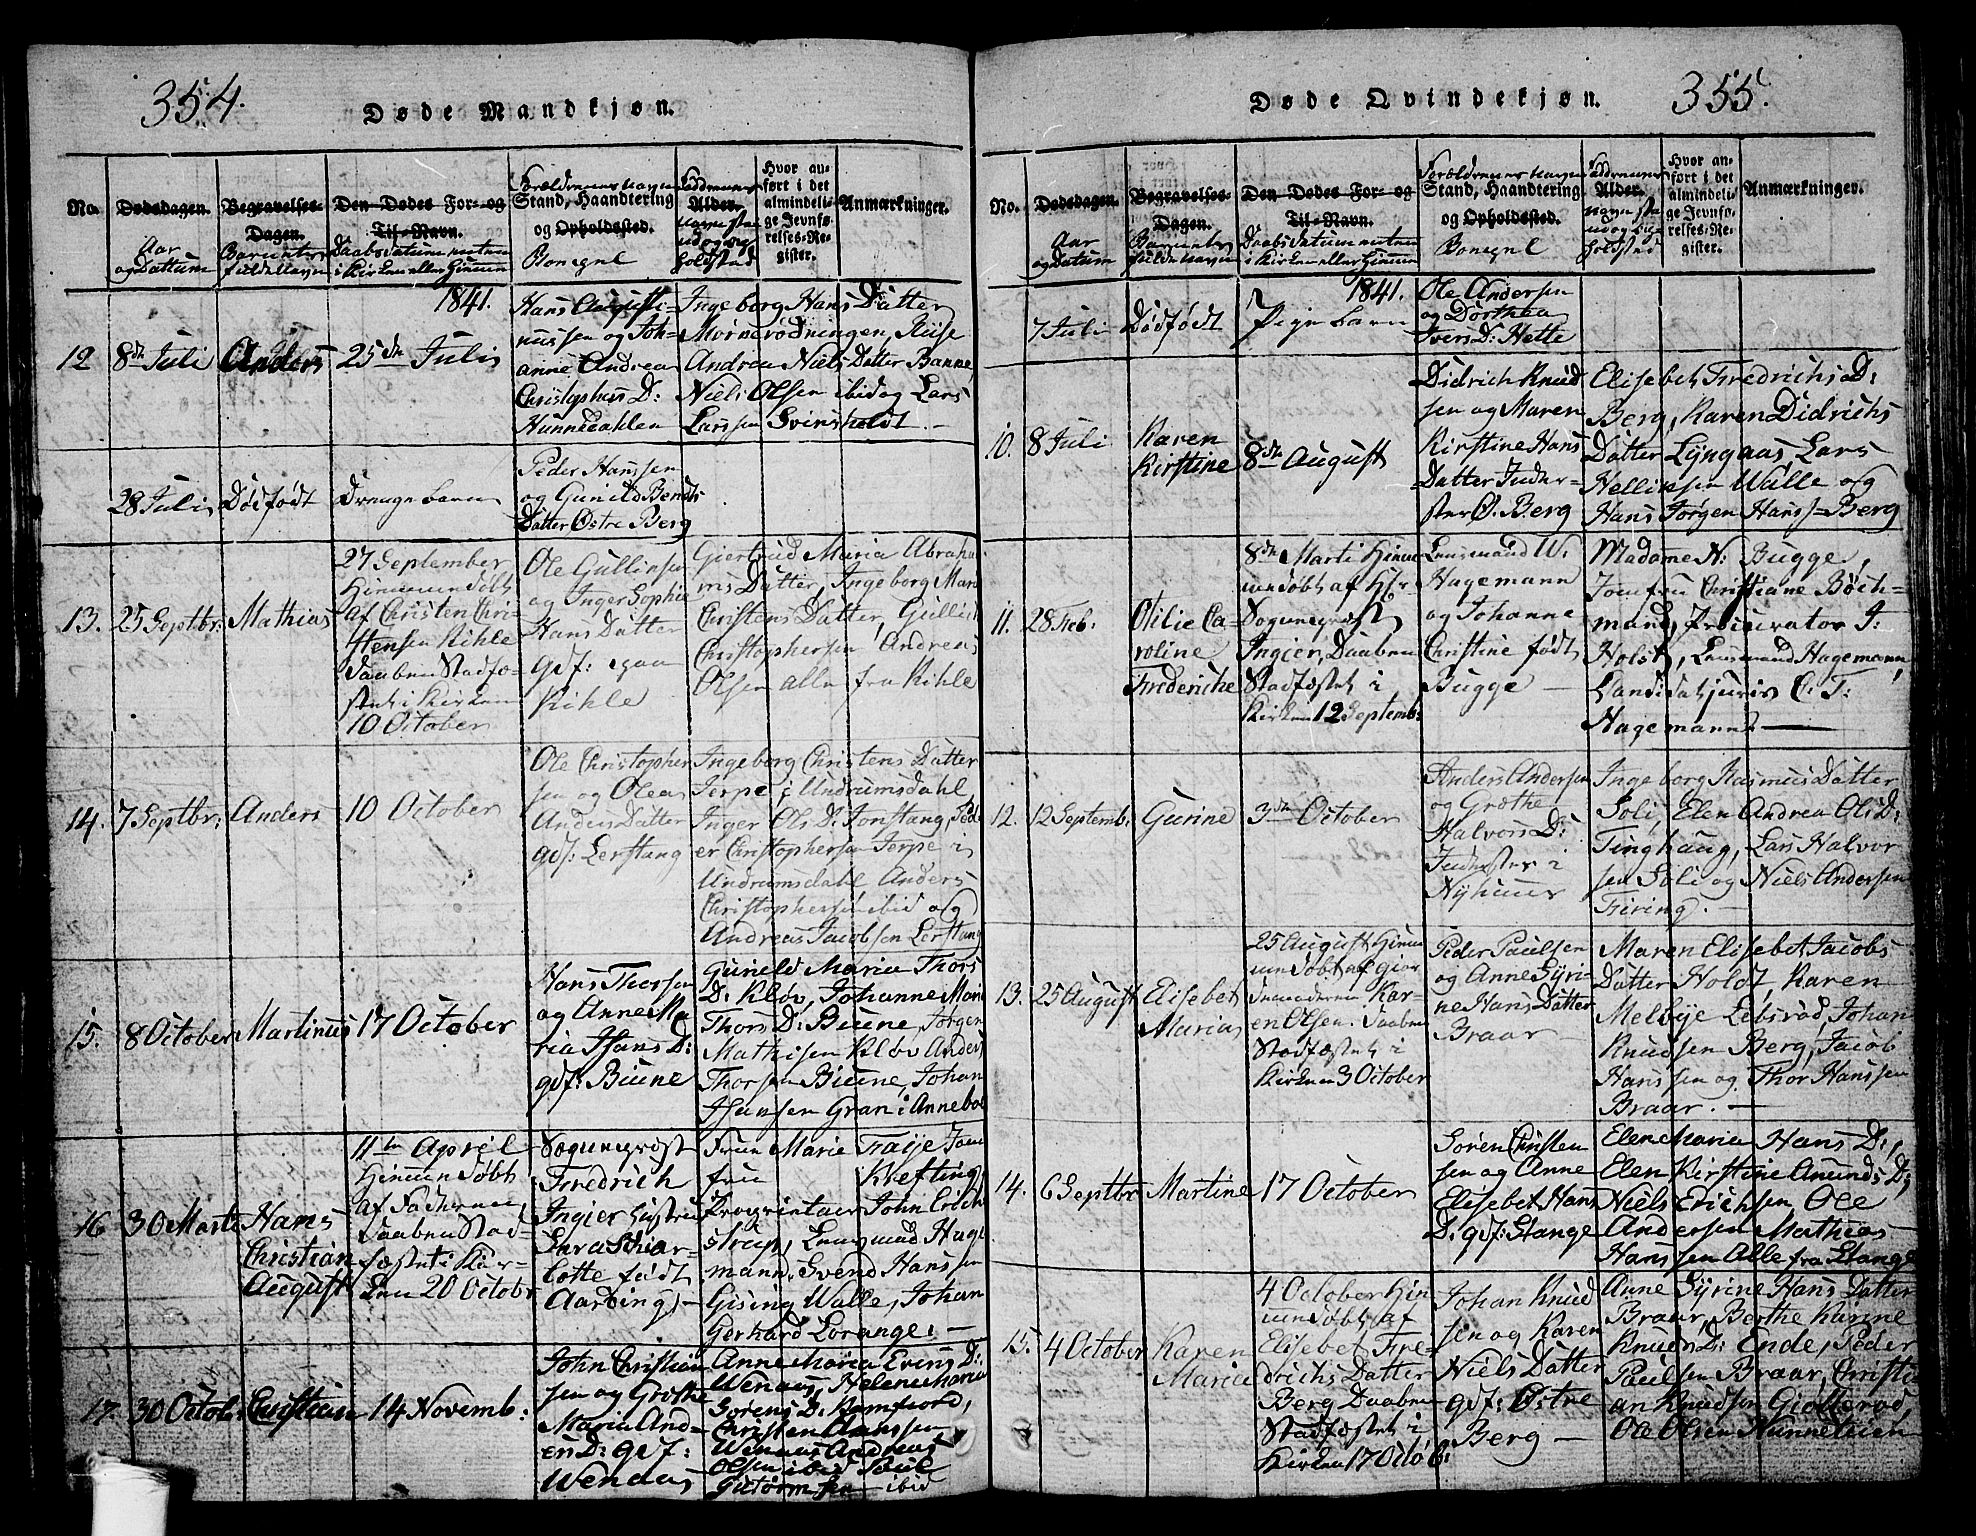 354.
Døde Mandkjøn.
No.
Dødsdagen.
Aar
og Dattum
Begravelses-
Dagen.
Barnets
fulde Navn
Den Dødes For- og
Til-Navn.
Daabsdatum enten
i Kirken eller Hiemme
Forældrenes Navn
Stand, Haandtering
og Opholdssted.
Boneqle
Faddrenes
Alder.
Navn
og
Hvor an-
ført i det
almindeli-
ge Jevnfø-
relses-Re-
gister.
Anmærkninger.
1841.
12
8de Juli
Anders
25de Julis
Hans Augusti-
nussen og Joh-
anne Andrea
Christophers D:
Hunnedahlen
Ingeborg Hans Datter
Mørnerødningen, Else
Andrea Niels Datter Banne,
Niels Olsen ibid og Lars
Larssen Svinsholdt. —
28 Juli
Dødfødt
Drenge barn
Peder Hanssen
og Gunild Bendts
Datter Østre Berg
13.
25 Septbr:
Mathias
27 September
Hiemmedøbt
af Christen Chri-
stensen Kihle
Daaben Stadfæ-
stet i Kirken
10 October
Ole Gullinsen
og Inger Sophie
Hans Datter
gdf: egaa
Kihle
Giertrud Maria Abraha
ms Datter, Ingeborg Mari
Christens Datter, Gullich
Christophersen Andreas
Olsen alle fra Kihle
14.
7 Septbr:
Anders
10 October
Ole Christopher
sen og Olea
Anders Datter
gdf: Lerstang
Ingeborg Christens Datter
Jerpe i Undrumsdahl,
Inger Ols D: Jonstang, Ped
er Christophersen Jerpe i
Undrumsdahl Anders
Christophersen ibid og
Andreas Jacobsen Lerstang
15.
8 October
Martinus
17 October
Hans Thorsen
og Anne Ma
ria Hans D:
gdf: Biune
Gunild Maria Thors
D: Kløv, Johanne Mari
Thors D: Biune, Jørgen
Mathisen Kløv Anders
Thorsen Biune, Johan
Hansen Gran i Annebo
16
30 Marts
Hans
Christian
August
11te April
Hiemmedøbt
af Faderen,
Daaben Stad-
fæstet i Kir-
ken 20 Octobr
Sogneprest
Fredrich
Ingier Hustru
Sara Schar-
lotte født
Aarbing
Frue Marie Fraije Jom
fru Kefting,
Proprietær John Erich
strup, Lensmand Hage
mann, Svend Hanssen
Gising Walle, Johan
Gerhard Lorange. —
17.
30 Octob:
Christian
14 Novemb:
John Christian
sen og Grethe
Maria And-
ers D: gdf:
Wennaas
Anne Maria Evens D:
Wennaas, Helene Maria
Sorens D: Kamfiord,
Christen Hanssen
Wennaas Andreas
Olsen ibid Poul
Gutormsen — ibid
355.
Døde Qvindekjøn.
No.
Dødsdagen.
Aar
og Datum
Begravelses-
Dagen.
Barnets
fulde Navn
Den Dødes For- og
Til-Navn.
Daabsdatum enten
i Kirken eller Hiemme
Forældrenes Navn
Stand, Haandtering
og Opholdssted.
Boneqle
Faddrenes
Alder.
Hvor an-
ført i det
almindeli-
ge Jevnfø-
relses-Re-
gister.
Anmærkninger.
1841.
7 Juli
Dødfødt
Pige barn
Ole Andersen
og Dorthea
Ivers D: Hette
10.
8 Juli
Karen
Kirstine
8de August
Didrich Knud
sen og Maren
Kirstine Hans
Datter Inder-
ster Ø. Berg
Elisebet Fredrichs D:
Berg, Karen Didrichs
Datter Lyngaas Lars
Hellinsen Walle og
Hans Jørgen Hanss: Berg
11.
28 Feb:
Otilie Ca-
roline
Frederiche
8de Marti Hiem
medøbt af Hr
Sogneprest
Ingier, Daaben
Stadfæstet i
Kirken 12 Septemb:
Lensmand W:
Hagemann
og Johanne
Christine født
Bugge —
Madame N: Bugge,
Jomfru Christiane Bøch-
mand, Procurator F:
Holst, Lensmand Hagemann,
Candidat juris C: F:
Hagemann —
12.
12 Septemb:
Gurine
3de October
Anders Andersen
og Grethe
Halvors D:
Inderster i
Nyhuus
Ingeborg Rasmus Datter
Soli, Elen Andrea Oli D:
Tinghaug, Lars Halvor
sen Soli og Niels Andersen
Firing. —
13.
25 August
Elisebet
Maria
25 August Hiem
medøbt af Gior
demoderen Kar-
en Olsen. Daaben
Stadfæstet i
Kirken 3 October
Peder Paulsen
og Anne Syri-
ne Hans Datter
Braar
Maren Elisebet Jacobs
Datter Holdt Karen
Melbye Lebsrød, Johan
Knudsen Berg, Jacob
Hanssen og Thor Hanssen
Braar. —
14.
6 Septbr
Martine
17 October
Soren Christen
sen og Anne
Elisebet Hans
D: gdf: Stange
Elen Maria Hans D:
Elen Kirstine Amunds D:
Niels Erichsen, Ole
Andersen Mathias
Hanssen Alle fra Stange
15.
4 October
Karen
Maria
4 October Hiem
medøbt af
Elisebet Fre-
drichs Datter
Berg Daaben
Stadfæstet i
Kirken 17 Octob:
Johan Knud
sen og Karen
Niels Datter
gdf: Østre
Berg —
Anne Syrine Hans Datter
Braar, Berthe Karine
Knuds D: Ende, Peder
Paulsen Braar, Christi
an Knudsen Giolterød,
Ole Olsen Hunnetuen